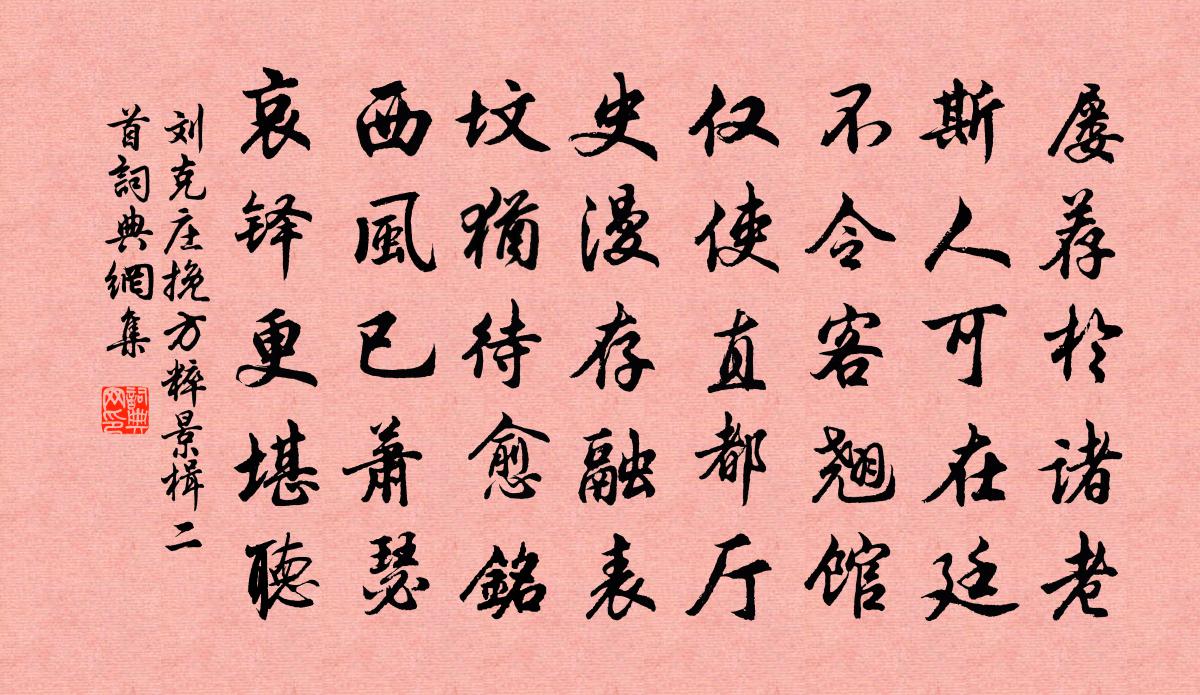 屡荐於诸老
斯人可在廷
不令客翘馆
仅使直都厅
史漫存融表
坟猶待愈銘
西風已萧瑟
哀铎更堪聽
刘克庄挽方粹景楫二
首詞典網集
詞典网印